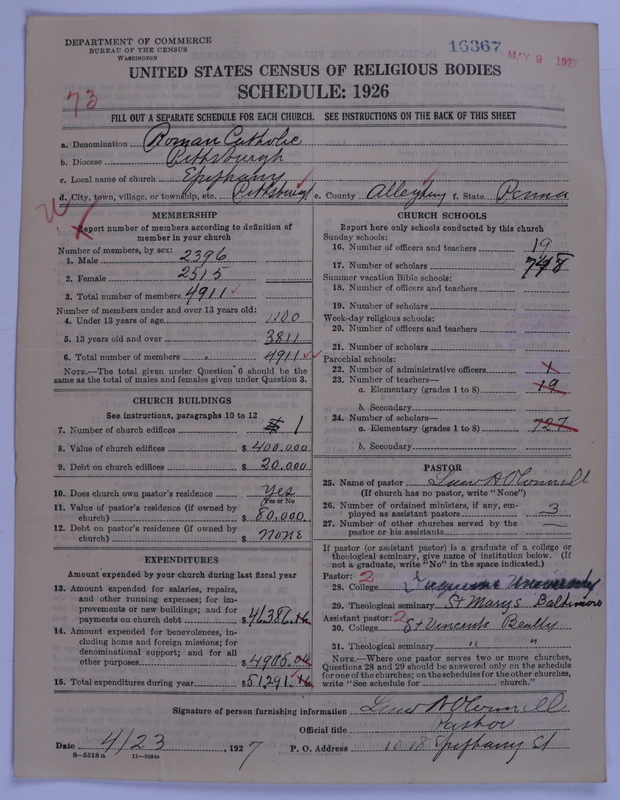 DEPARTMENT OF COMMERCE
BUREAU OF THE CENSUS
WASHINGTON
16367
MAY 9 1927
UNITED STATES CENSUS OF RELIGIOUS BODIES
SCHEDULE: 1926
73
FILL OUT A SEPARATE SCHEDULE FOR EACH CHURCH. SEE INSTRUCTIONS ON THE BACK OF THIS SHEET
a. Denomination Roman Catholic
b. Diocese Pittsburgh
c. Local name of church Epiphany
d. City, town, village, or township, etc. Pittsburgh e. County Allegheny f. State Penna
MEMBERSHIP
Report number of members according to definition of member in your church
Number of members, by sex:
1. Male 2396
2. Female 2515
3. Total number of members 4911
Number of members under and over 13 years old:
4. Under 13 years of age 1100
5. 13 years old and over 3811
6. Total number of members 4911
NOTE.—The total given under Question 6 should be the same as the total of males and females given under Question 3.
CHURCH BUILDINGS
See instructions, paragraphs 10 to 12
7. Number of church edifices 1
8. Value of church edifices $ 400.000
9. Debt on church edifices $ 20.000
10. Does church own pastor's residence Yes
(Yes or No)
11. Value of pastor's residence (if owned by church) $ 80,000
12. Debt on pastor's residence (if owned by church) $ none
EXPENDITURES
Amount expended by your church during last fiscal year
13. Amount expended for salaries, repairs, and other running expenses; for improvements or new buildings; and for payments on church debt $ 46386.16
14. Amount expended for benevolences, including home and foreign missions; for denominational support; and for all other purposes $ 4905.00
15. Total expenditures during year $ 51291.16
CHURCH SCHOOLS
Report here only schools conducted by this church
Sunday schools:
16. Number of officers and teachers 19
17. Number of scholars 748
Summer vacation Bible schools:
18. Number of officers and teachers
19. Number of scholars
Week-day religious schools:
20. Number of officers and teachers
21. Number of scholars
Parochial schools:
22. Number of administrative officers 1
23. Number of teachers—
a. Elementary (grades 1 to 8) 19
b. Secondary
24. Number of scholars—
a. Elementary (grades 1 to 8) 727
b. Secondary
PASTOR
25. Name of pastor A O'Connell
(If church has no pastor, write "None")
26. Number of ordained ministers, if any, employed as assistant pastors 3
27. Number of other churches served by the pastor or his assistants —
If pastor (or assistant pastor) is a graduate of a college or theological seminary, give name of institution below. (If not a graduate, write "No" in the space indicated.)
Pastor: 2
28. College Duquesne University
29. Theological seminary St Marys Baltimore
Assistant pastor: 2
30. College St Vincents Beatty
31. Theological seminary " "
NOTE.—Where one pastor serves two or more churches, Questions 28 and 29 should be answered only on the schedule for one of the churches; on the schedules for the other churches, write "See schedule for church."
Signature of person furnishing information A O'Connell
Official title Pastor
Date 4/23, 1927 P. O. Address 1018 Epiphany St
8—5518a 11—9204